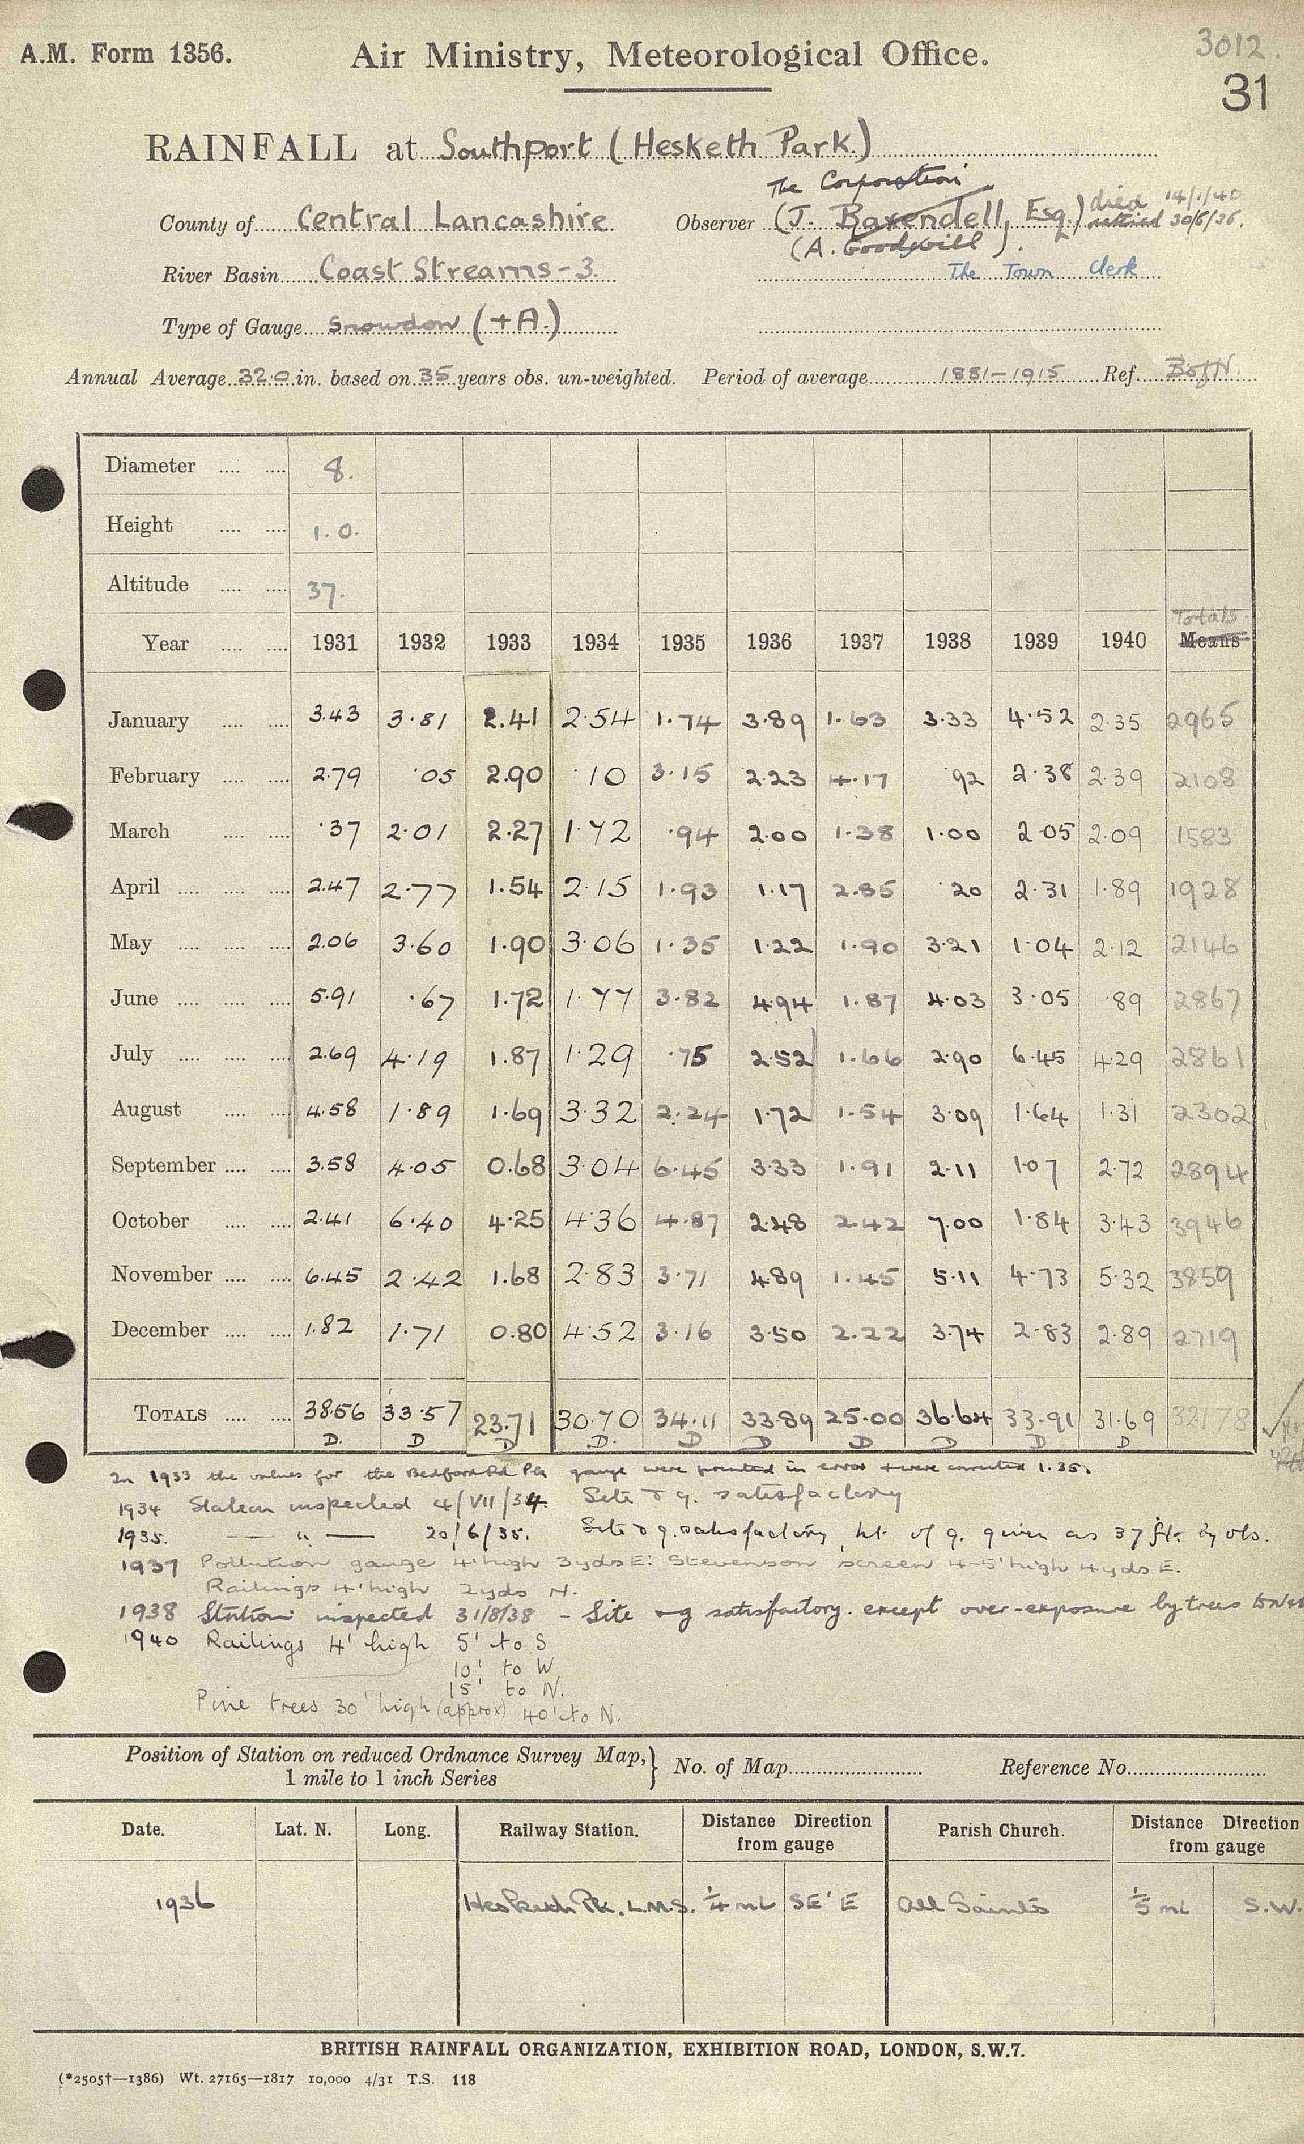 A.M. Form 1356. Air Ministry, Meteorological Office. 3012.
31
RAINFALL at Southport (Hesketh Park)
The Corporation
County of Central Lancashire Observer (J. Baxendell, Esq.) died 14/1/40
retired 30/6/36.
(A. Goodwill).
River Basin Coast Streams-3. The Town Clerk
Type of Gauge Snowdon (+A.)
Annual Average 32.0 in. based on 35 years obs. un-weighted. Period of average 1881-1915 Ref. B of N.
Diameter .... .... 8.
Height .... .... 1.0.
Altitude .... .... 37.
Totals
Year .... .... 1931 1932 1933 1934 1935 1936 1937 1938 1939 1940 Means
January .... .... 3.43 3.81 2.41 2.54 1.74 3.89 1.63 3.33 4.52 2.35 2965
February .... .... 2.79 .05 2.90 .10 3.15 2.23 4.17 .92 2.38 2.39 2108
March .... .... .37 2.01 2.27 1.72 .94 2.00 1.38 1.00 2.05 2.09 1583
April .... .... .... 2.47 2.77 1.54 2.15 1.93 1.17 2.85 .20 2.31 1.89 1928
May .... .... .... 2.06 3.60 1.90 3.06 1.35 1.22 1.90 3.21 1.04 2.12 2146
June .... .... .... 5.91 .67 1.72 1.77 3.82 4.94 1.87 4.03 3.05 .89 2867
July .... .... .... 2.69 4.19 1.87 1.29 .75 2.52 1.66 2.90 6.45 4.29 2861
August .... .... 4.58 1.89 1.69 3.32 2.24 1.72 1.54 3.09 1.64 1.31 2302
September .... .... 3.58 4.05 0.68 3.04 6.45 3.33 1.91 2.11 1.07 2.72 2894
October .... .... 2.41 6.40 4.25 4.36 4.87 2.48 2.42 7.00 1.84 3.43 3946
November .... .... 6.45 2.42 1.68 2.83 3.71 4.89 1.45 5.11 4.73 5.32 3859
December .... .... 1.82 1.71 0.80 4.52 3.16 3.50 2.22 3.74 2.83 2.89 2719
TOTALS .... .... 38.56 33.57 23.71 30.70 34.11 33.89 25.00 36.64 33.91 31.69 32178
D. D D D. D D D D D D
In 1933 the values for the Bedford Rd Pk gauge were printed in error & were corrected 1.35.
1934 Station inspected 4/VII/34. Site & g. satisfactory
1935. — " — 20/6/35. Site & g. satisfactory, ht. of g. given as 37 ft. by obs.
1937 Pollution gauge 4' high 3 yds E: Stevenson screen 4-5' high 4 yds E.
Railings 4' high 2 yds N.
1938 Station inspected 31/8/38 - Site & g satisfactory. except over-exposure by trees
1940 Railings 4' high 5' to S
10' to W
15' to N.
Pine trees 30' high (approx) 40' to N.
Position of Station on reduced Ordnance Survey Map, } No. of Map Reference No.
1 mile to 1 inch Series
Date. Lat. N. Long. Railway Station. Distance Direction from gauge Parish Church. Distance Direction from gauge
1936 Hesketh Pk. L.M.S. 1/4 ml SE'E All Saints 1/5 ml S.W.
BRITISH RAINFALL ORGANIZATION, EXHIBITION ROAD, LONDON, S.W.7.
(*2505†—1386) Wt. 27165—1817 10,000 4/31 T.S. 118